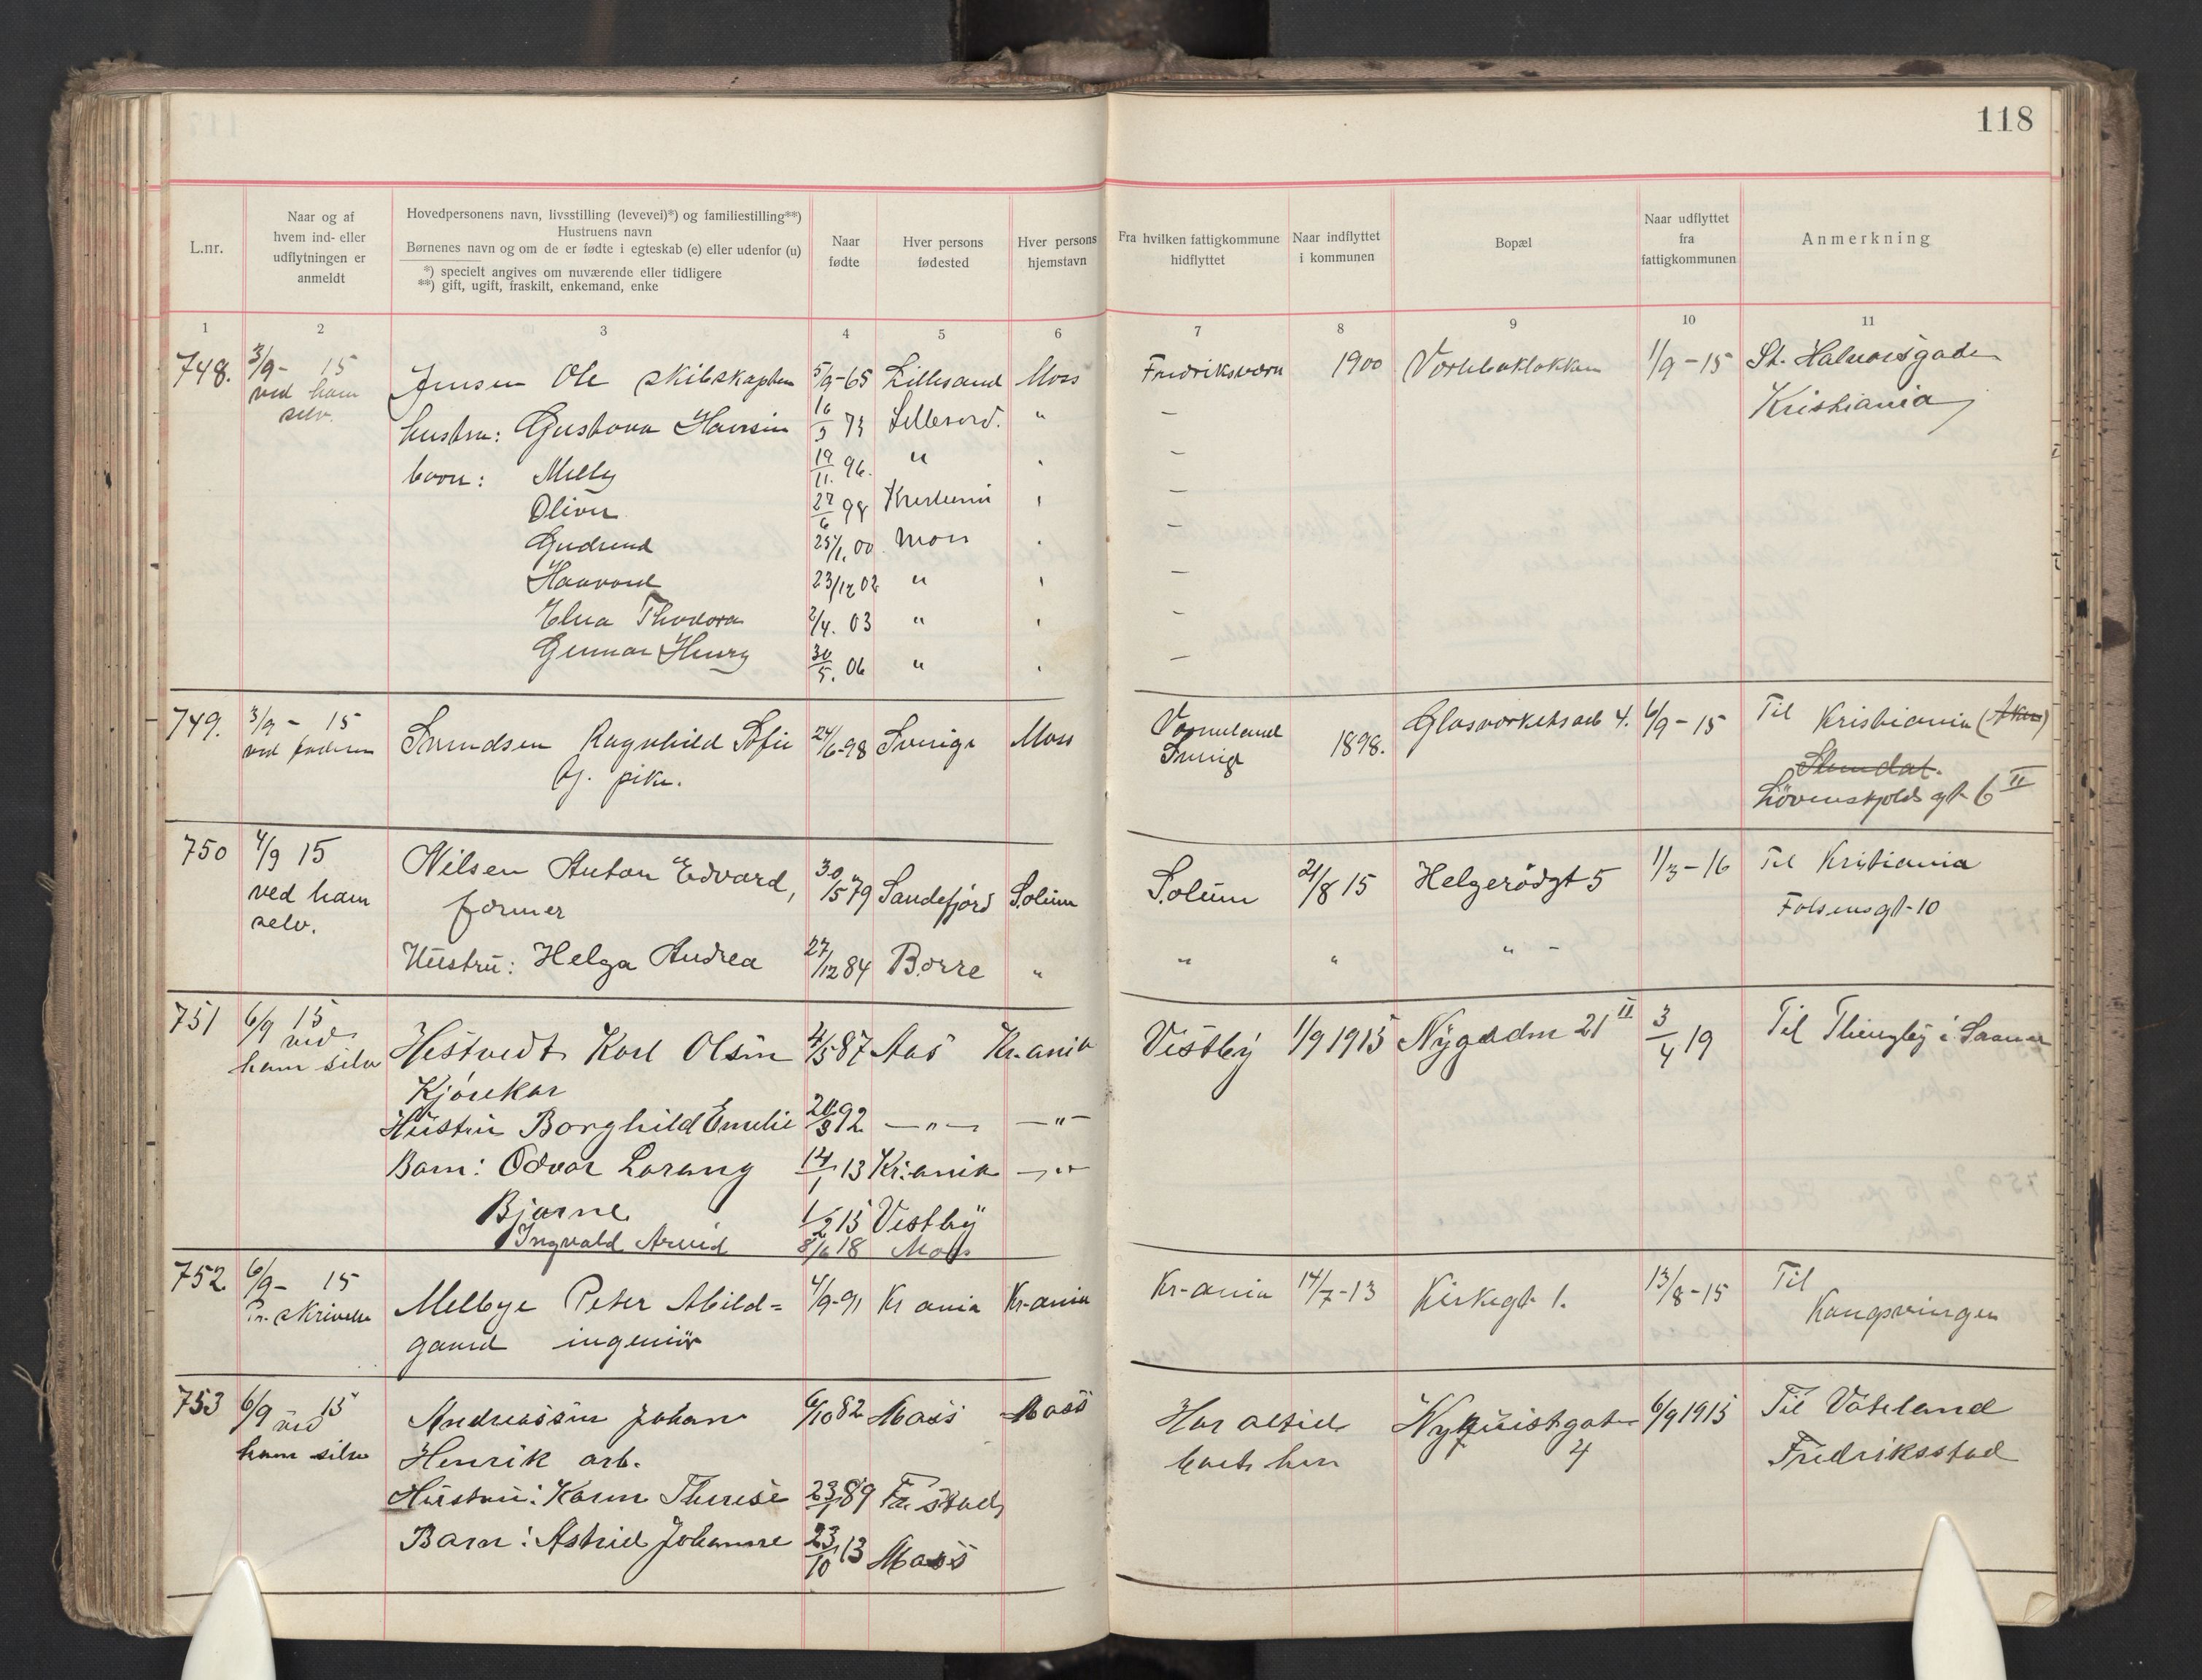 118
L.nr.
Naar og af
hvem ind- eller
udflytningen er
anmeldt
Hovedpersonens navn, livsstilling (levevei)*) og familiestilling**)
Hustruens navn
Børnenes navn og om de er fødte i egteskab (e) eller udenfor (u)
*) specielt angives om nuværende eller tidligere
**) gift, ugift, fraskilt, enkemand, enke
Naar
fødte
Hver persons
fødested
Hver persons
hjemstavn
Fra hvilken fattigkommune
hidflyttet
Naar indflyttet
i kommunen
Bopæl
Naar udflyttet
fra
fattigkommunen
Anmerkning
1 2 3 4 5 6 7 8 9 10 11
748. 3/9- 15 Jensen Ole skibskaptein 5/9-65 Lillesand Moss Fredriksværn 1900 1/9-15 St. Halvorsgade
ved ham
selv.
hustru: Gustava 16/3 73 Lillesand. " — Kristiania
børn: Milly 19/11. 96. " —
Oliver 27/6 98 Kristiania —
Gudrund 25/1. 00 Moss —
Haavard 23/12 02 " —
Elna Thodora 2/4. 03 " —
Gunnar Henry 30/5. 06 " —
749. 3/9- 15 Svendsen Ragnhild Sofie 24/6-98 Sverige Moss Vermeland 1898. Glasverketsarb 4. 6/9-15 Til Kristiania (Aker)
ved faderen
Sverige
Ug. pike.
Løvenskjolds gt 6 II
750 4/9 15 Nilsen Anton Edvard, 30/5 79 Sandefjord Solum Solum 21/8 15 Helgerødgt 5 1/3-16 Til Kristiania
ved ham
selv.
former
Falsensgt-10
Hustru: Helga Andrea 27/12 84 Borre " " " " -
751 6/9 15 Hestvedt Karl Olsen 4/5 87 Aas Kr.ania Vestby 1/9 1915 Nygaden 21 II 3/4 19 Til Thingby i Saaner
ved
ham selv
Kjørekar
Hustru Borghild Emelie 20/3 92 —"— —"—
Barn: Odvar Lorang 14/1 13 Kr.ania —"—
Bjarne 1/2 15 Vestby
Ingvald Arvid 8/6 18 Moss
752 6/9- 15 Melbye Peter Abild= 4/9-91 Kr ania Kr-ania Kr-ania 14/7-13 Kirkegt 1. 13/8-15 Til
Pr. skrivelse
gaard ingeniør
Kongsvingen
753 6/9 15 Andreassen Johan 6/10 82 Moss Moss Har altid Nyquistgaten 6/9 1915 Til Vateland
ved
ham selv
Henrik arb.
boet her
4
Fredriksstad
Hustru: Karen Therese 23/1 89 Fr. stad
Barn: Astrid Johanne 23/10 13 Moss